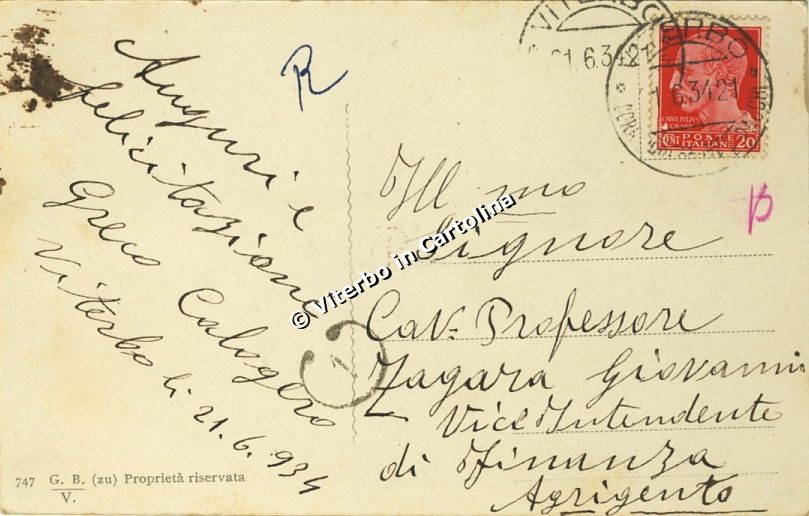 Auguri e
felicitazione
Greco Calogero
Viterbo li 21. 6. 934
R
VITERBO
21.6.34 21
VITERBO
21.6.34 21
CAIVS IVLIVS
CAESAR
CENT POSTE ITALIANE 20
Ill mo
Signore
Cav. Professore
Zagara Giovanni
Vice Intendente
di Finanza
Agrigento
© Viterbo in Cartolina
747 G. B. (zu) Proprietà riservata
V.